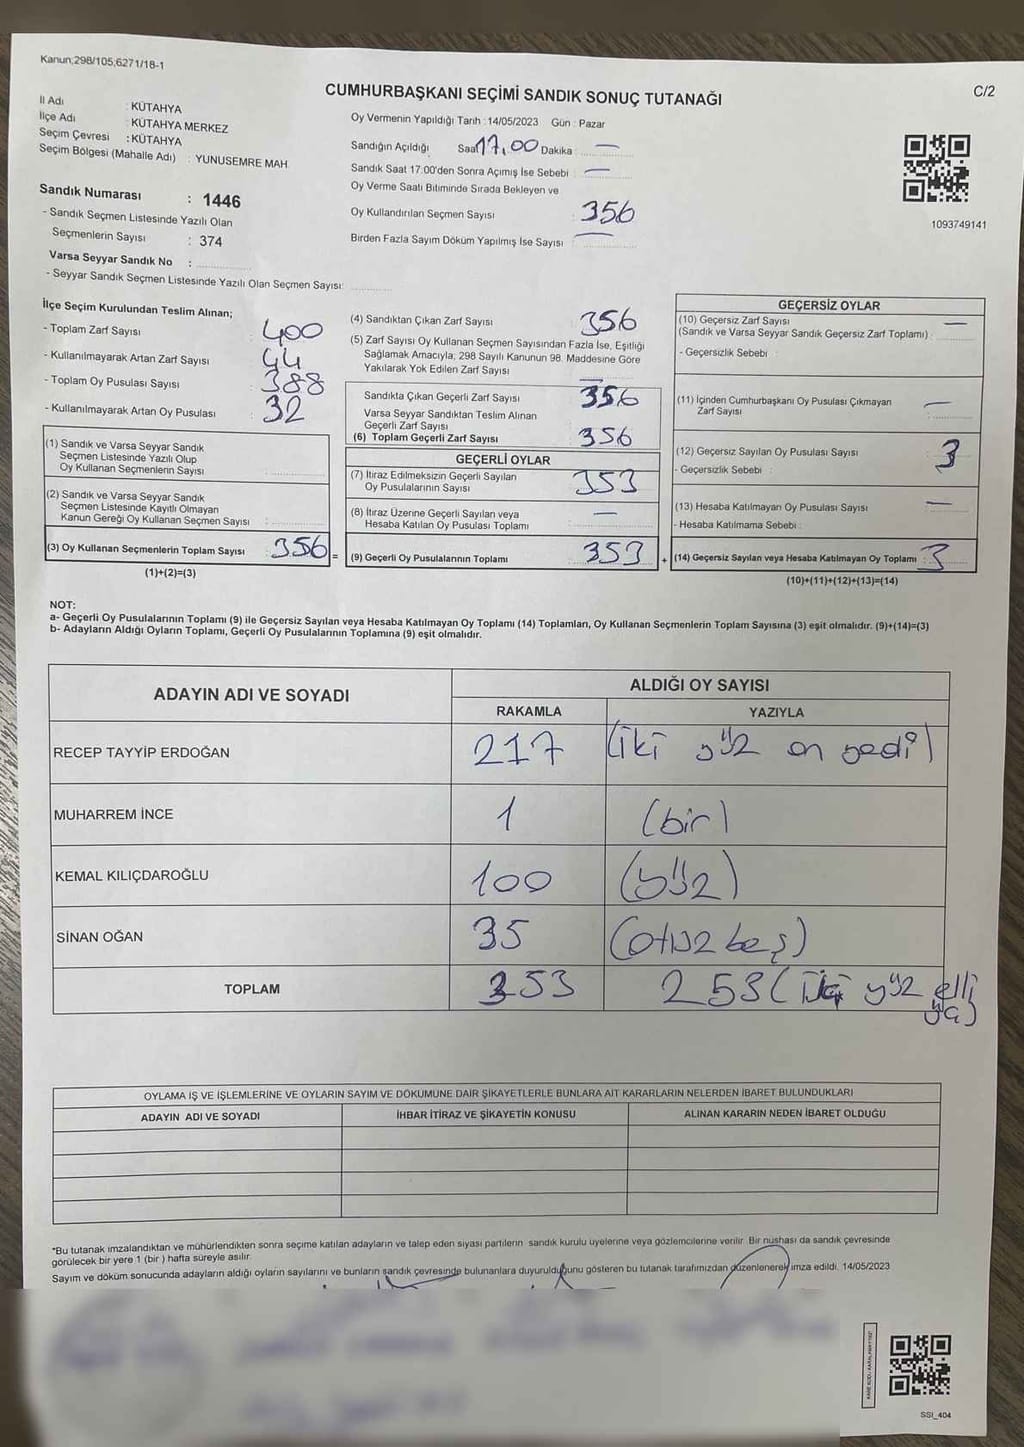 Kanun;298/105;6271/18-1
C/2
CUMHURBAŞKANI SEÇİMİ SANDIK SONUÇ TUTANAĞI
İl Adı : KÜTAHYA
İlçe Adı : KÜTAHYA MERKEZ
Seçim Çevresi : KÜTAHYA
Seçim Bölgesi (Mahalle Adı) : YUNUSEMRE MAH.
Sandık Numarası : 1446
- Sandık Seçmen Listesinde Yazılı Olan
Seçmenlerin Sayısı : 374
Varsa Seyyar Sandık No :
- Seyyar Sandık Seçmen Listesinde Yazılı Olan Seçmen Sayısı:
Oy Vermenin Yapıldığı Tarih : 14/05/2023 Gün : Pazar
Sandığın Açıldığı Saat 17,00 Dakika : —
Sandık Saat 17:00'den Sonra Açımış İse Sebebi : —
Oy Verme Saati Bitiminde Sırada Bekleyen ve
Oy Kullandırılan Seçmen Sayısı : 356
Birden Fazla Sayım Döküm Yapılmış İse Sayısı : —
1093749141
İlçe Seçim Kurulundan Teslim Alınan;
- Toplam Zarf Sayısı : 400
- Kullanılmayarak Artan Zarf Sayısı : 44
- Toplam Oy Pusulası Sayısı : 388
- Kullanılmayarak Artan Oy Pusulası : 32
(1) Sandık ve Varsa Seyyar Sandık
Seçmen Listesinde Yazılı Olup
Oy Kullanan Seçmenlerin Sayısı :
(2) Sandık ve Varsa Seyyar Sandık
Seçmen Listesinde Kayıtlı Olmayan
Kanun Gereği Oy Kullanan Seçmen Sayısı :
(3) Oy Kullanan Seçmenlerin Toplam Sayısı : 356 =
(1)+(2)=(3)
(4) Sandıktan Çıkan Zarf Sayısı 356
(5) Zarf Sayısı Oy Kullanan Seçmen Sayısından Fazla İse, Eşitliği
Sağlamak Amacıyla; 298 Sayılı Kanunun 98. Maddesine Göre
Yakılarak Yok Edilen Zarf Sayısı —
Sandıkta Çıkan Geçerli Zarf Sayısı 356
Varsa Seyyar Sandıktan Teslim Alınan
Geçerli Zarf Sayısı
(6) Toplam Geçerli Zarf Sayısı 356
GEÇERLİ OYLAR
(7) İtiraz Edilmeksizin Geçerli Sayılan
Oy Pusulalarının Sayısı 353
(8) İtiraz Üzerine Geçerli Sayılan veya
Hesaba Katılan Oy Pusulası Toplamı —
(9) Geçerli Oy Pusulalarının Toplamı 353 +
GEÇERSİZ OYLAR
(10) Geçersiz Zarf Sayısı —
(Sandık ve Varsa Seyyar Sandık Geçersiz Zarf Toplamı) :
- Geçersizlik Sebebi :
(11) İçinden Cumhurbaşkanı Oy Pusulası Çıkmayan —
Zarf Sayısı :
(12) Geçersiz Sayılan Oy Pusulası Sayısı : 3
- Geçersizlik Sebebi :
(13) Hesaba Katılmayan Oy Pusulası Sayısı : —
- Hesaba Katılmama Sebebi :
(14) Geçersiz Sayılan veya Hesaba Katılmayan Oy Toplamı : 3
(10)+(11)+(12)+(13)=(14)
NOT:
a- Geçerli Oy Pusulalarının Toplamı (9) ile Geçersiz Sayılan veya Hesaba Katılmayan Oy Toplamı (14) Toplamları, Oy Kullanan Seçmenlerin Toplam Sayısına (3) eşit olmalıdır. (9)+(14)=(3)
b- Adayların Aldığı Oyların Toplamı, Geçerli Oy Pusulalarının Toplamına (9) eşit olmalıdır.
ADAYIN ADI VE SOYADI
ALDIĞI OY SAYISI
RAKAMLA YAZIYLA
RECEP TAYYİP ERDOĞAN 217 (iki yüz on yedi)
MUHARREM İNCE 1 (bir)
KEMAL KILIÇDAROĞLU 100 (yüz)
SİNAN OĞAN 35 (otuz beş)
TOPLAM 353 253 (iki yüz elli
üç)
OYLAMA İŞ VE İŞLEMLERİNE VE OYLARIN SAYIM VE DÖKÜMÜNE DAİR ŞİKAYETLERLE BUNLARA AİT KARARLARIN NELERDEN İBARET BULUNDUKLARI
ADAYIN ADI VE SOYADI İHBAR İTİRAZ VE ŞİKAYETİN KONUSU ALINAN KARARIN NEDEN İBARET OLDUĞU
*Bu tutanak imzalandıktan ve mühürlendikten sonra seçime katılan adayların ve talep eden siyasi partilerin sandık kurulu üyelerine veya gözlemcilerine verilir. Bir nüshası da sandık çevresinde
görülecek bir yere 1 (bir ) hafta süreyle asılır.
Sayım ve döküm sonucunda adayların aldığı oyların sayılarını ve bunların sandık çevresinde bulunanlara duyurulduğunu gösteren bu tutanak tarafımızdan düzenlenerek imza edildi. 14/05/2023
SSI_404